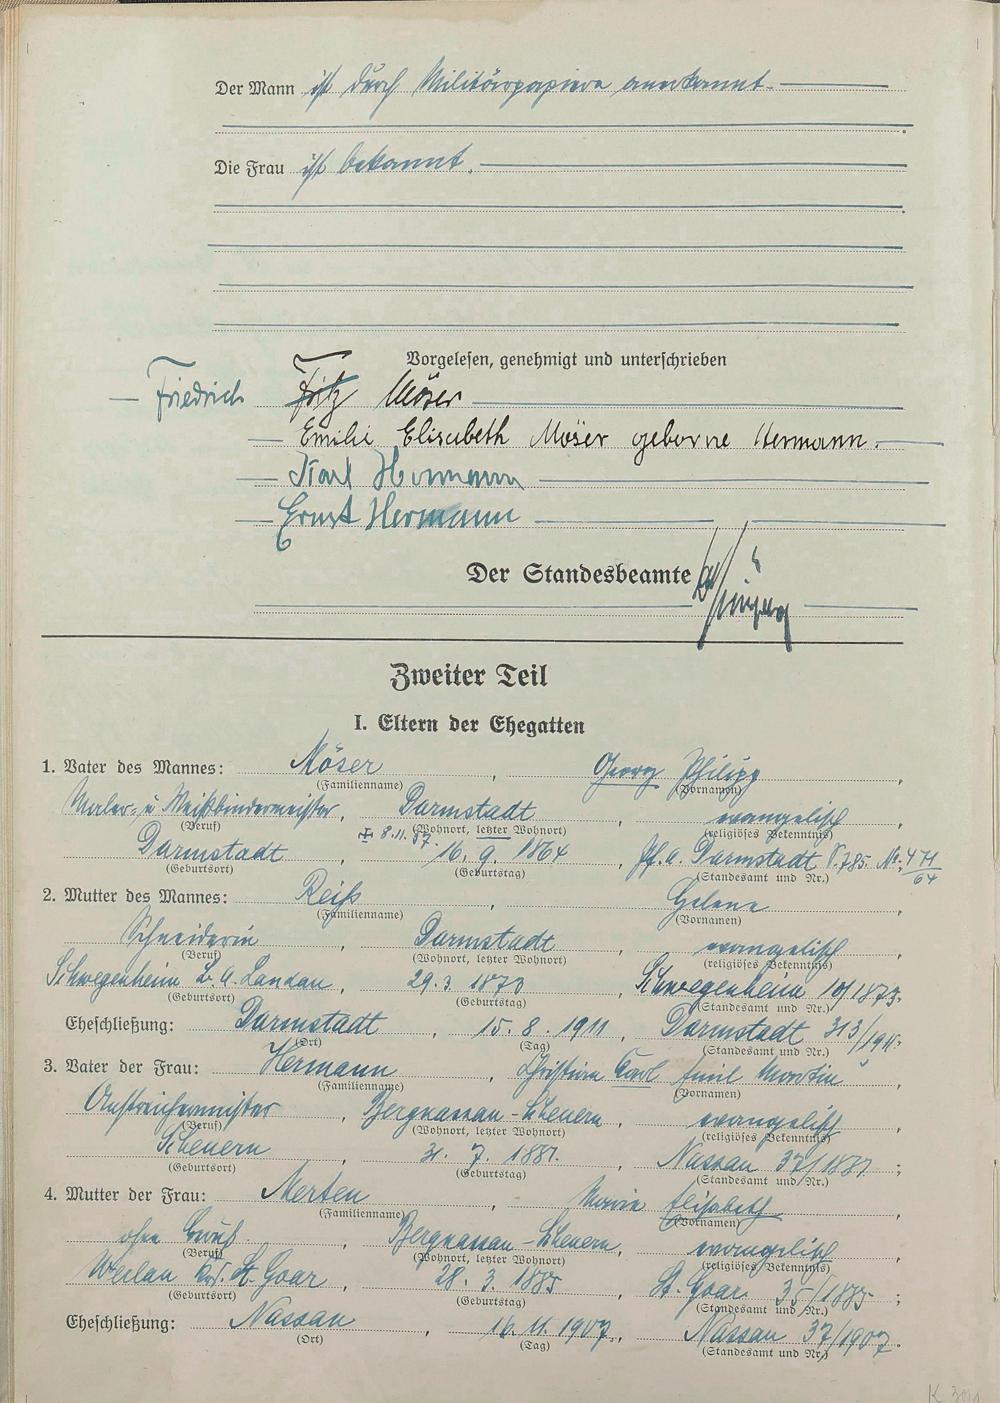 Der Mann ist durch Militärpapiere anerkannt.
Die Frau ist bekannt.
Vorgelesen, genehmigt und unterschrieben
Friedrich Fritz Möser
Emilie Elisabeth Möser geborne Hermann.
Karl Hermann
Ernst Hermann
Der Standesbeamte
Zweiter Teil
I. Eltern der Ehegatten
1. Vater des Mannes: Möser, Georg Philipp,
(Familienname) (Vornamen)
Maler- u Weißbindermeister, Darmstadt, evangelisch,
(Beruf) (Wohnort, letzter Wohnort) (religiöses Bekenntnis)
Darmstadt, ✠ 8.11.37. 16. 9. 1864, Pf.a. Darmstadt V.785. No. 471/64
(Geburtsort) (Geburtstag) (Standesamt und Nr.)
2. Mutter des Mannes: Reiß, Helene,
(Familienname) (Vornamen)
Schneiderin, Darmstadt, evangelisch,
(Beruf) (Wohnort, letzter Wohnort) (religiöses Bekenntnis)
Schwegenheim B.A. Landau, 29. 3. 1870, Schwegenheim 10/1873.
(Geburtsort) (Geburtstag) (Standesamt und Nr.)
Eheschließung: Darmstadt, 15. 8. 1911, Darmstadt 313/1911.
(Ort) (Tag) (Standesamt und Nr.)
3. Vater der Frau: Hermann, Christian Carl Emil Martin,
(Familienname) (Vornamen)
Anstreichermeister, Bergnassau-Scheuern, evangelisch,
(Beruf) (Wohnort, letzter Wohnort) (religiöses Bekenntnis)
Scheuern, 31. 7. 1881., Nassau 37/1881.;
(Geburtsort) (Geburtstag) (Standesamt und Nr.)
4. Mutter der Frau: Merten, Maria Elisabeth,
(Familienname) (Vornamen)
ohne Beruf, Bergnassau-Scheuern, evangelisch,
(Beruf) (Wohnort, letzter Wohnort) (religiöses Bekenntnis)
Werlau Krs. St. Goar, 28. 3. 1885, St. Goar 35/1885;
(Geburtsort) (Geburtstag) (Standesamt und Nr.)
Eheschließung: Nassau, 16. 11. 1907., Nassau 37/1907.
(Ort) (Tag) (Standesamt und Nr.)